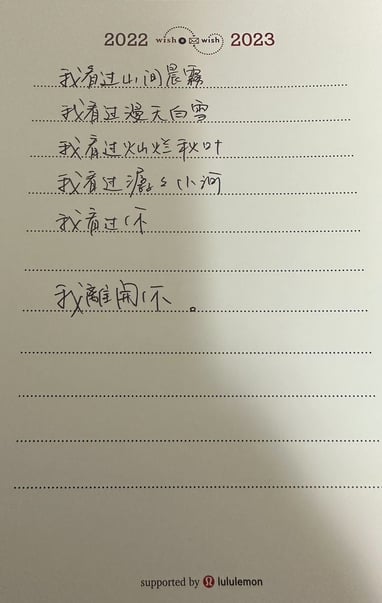 2022 wish wish 2023
我看过山间晨霧
我看过漫天白雪
我看过灿烂秋叶
我看过潺々小河
我看过你
我離開你。
supported by lululemon